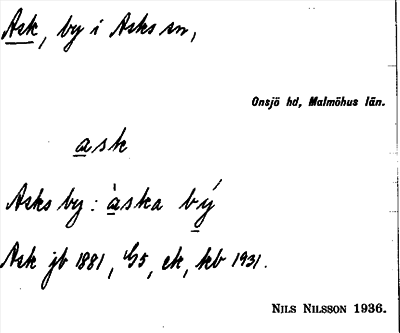 Ask, by i Asks sn,
Onsjö hd, Malmöhus län.
ask
Asks by: àska bý
Ask jb 1881, 4/55, ek, kb 1931.
NILS NILSSON 1936.